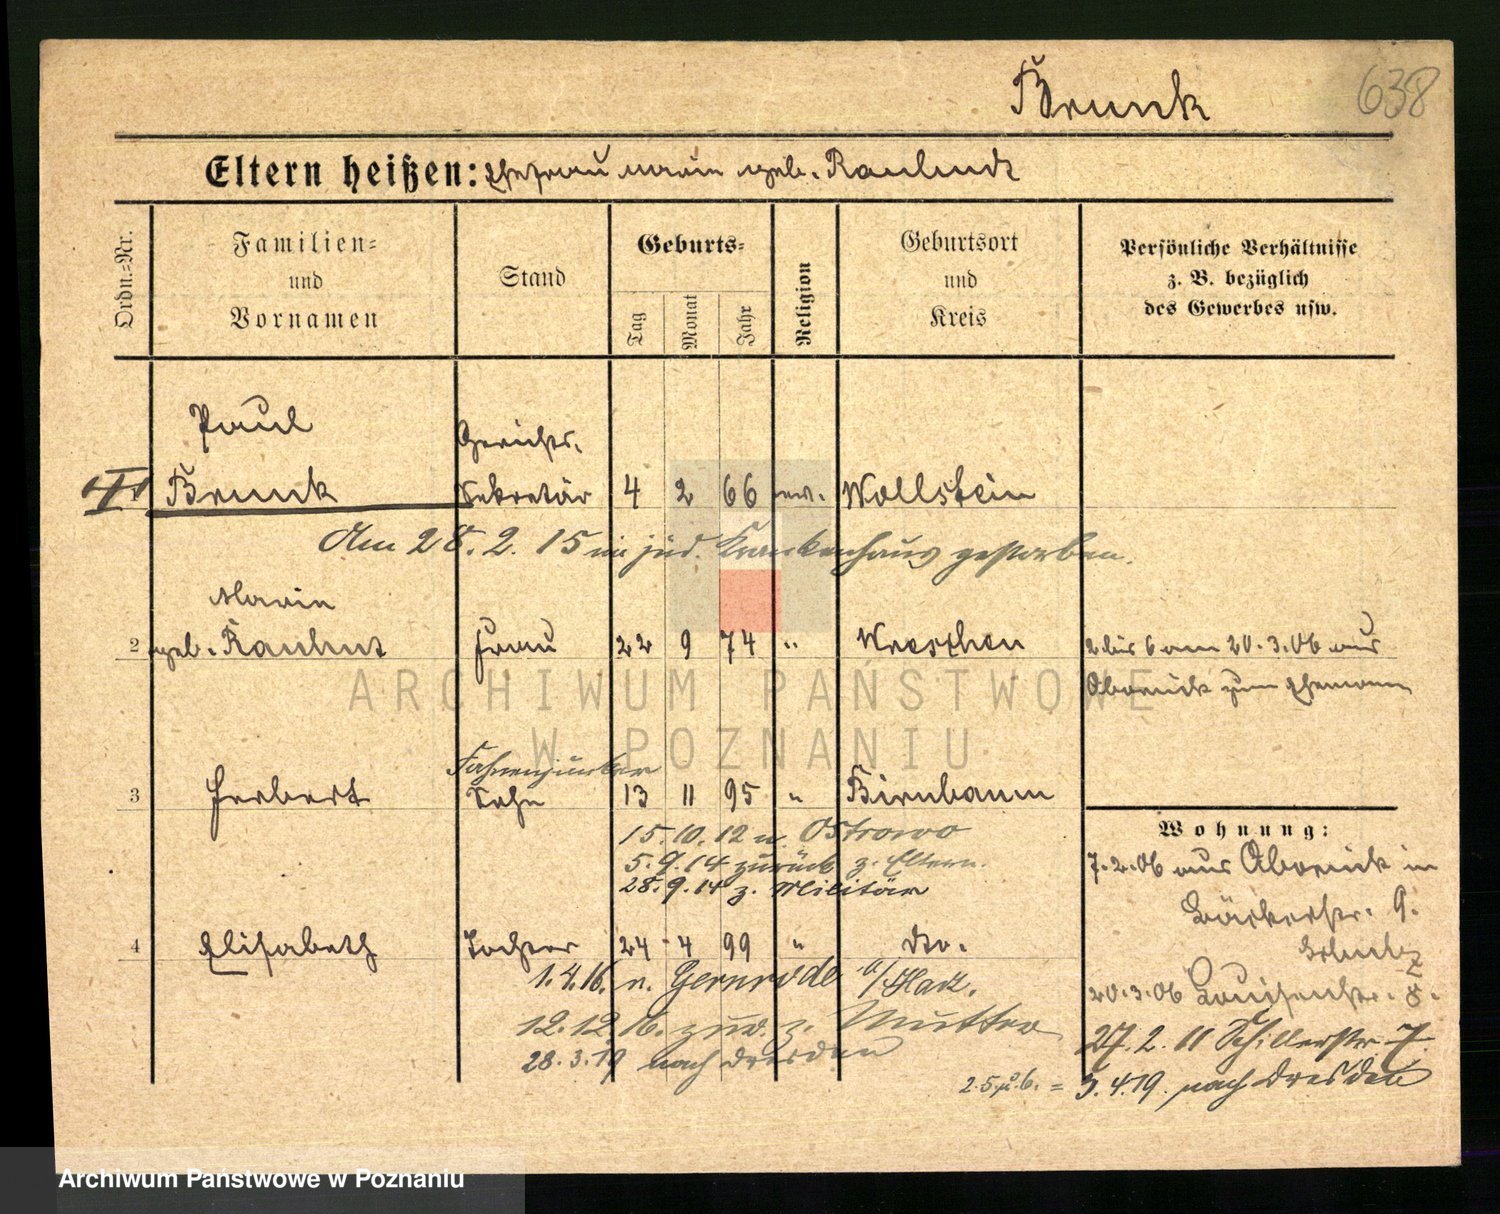 Brunk 638
Eltern heißen: Ehefrau Marie geb. Rauhudt
Ordn.=Nr.
Familien=
und
Vornamen
Stand
Geburts=
Tag
Monat
Jahr
Religion
Geburtsort
und
Kreis
Persönliche Verhältnisse
z. B. bezüglich
des Gewerbes usw.
Paul Gerichts.
Brunk Sekretär 4 2 66 ev. Wollstein
Am 28. 2. 15 im jüd. Krankenhaus gestorben.
Marie
2 geb. Rauhut Frau 22 9 74 " Wreschen
2 bis 6 am 20.3.06 aus
Obornick zum Ehemann
Fahnenjunker
3 Herbert Sohn 13 11 95 " Birnbaum
15.10.12 n. Ostrowo
5.9.14 zurück z. Eltern.
28.9.14 z. Militär
4 Elisabeth Tochter 24 4 99 " do.
1.4.16. n. Gernrode a/Harz.
12.12.16. zur. z. Mutter
28.3.19 nach Dresden
Wohnung:
7.2.06 aus Obornick in
Bäckerstr. 9.
20.3.06 Louisenstr. 8.
27.2.11 Schillerstr. 7
2.5.u.6. = 3.4.19. nach Dresden
ARCHIWUM PAŃSTWOWE
W POZNANIU
Archiwum Państwowe w Poznaniu